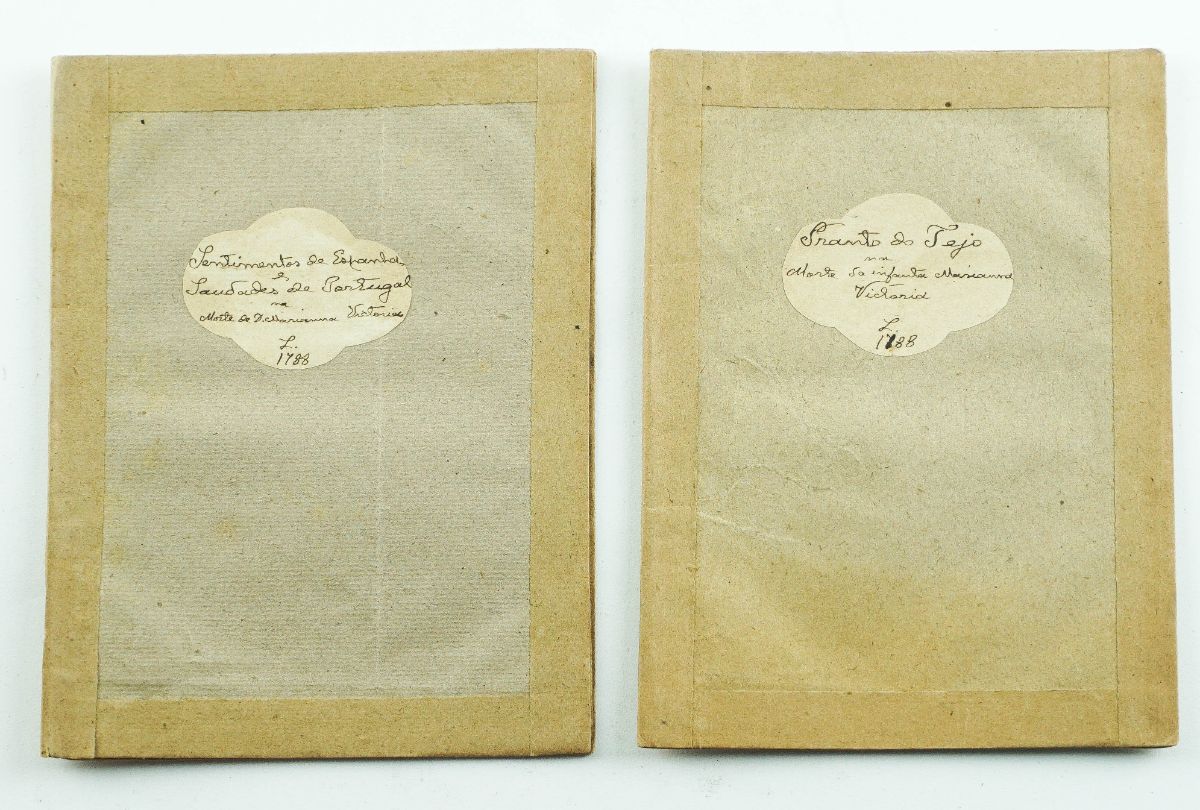 Sentimentos de Espanha
e
Saudades de Portugal
na
Morte de D. Marianna Victoria
L.
1788
Pranto do Tejo
na
Morte da infanta Marianna
Victoria
L.
1788